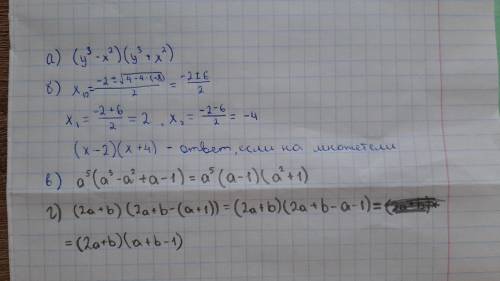 а) (y³ - x²)(y³ + x²)
б) x₁,₂ = (-2 ± √(4 - 4·(-8)))/2 = (-2 ± 6)/2
x₁ = (-2+6)/2 = 2, x₂ = (-2-6)/2 = -4
(x-2)(x+4) - ответ, если на множетели
в) a⁵(a³ - a² + a - 1) = a⁵(a-1)(a²+1)
г) (2a+b)(2a+b-(a+1)) = (2a+b)(2a+b-a-1) =
= (2a+b)(a+b-1)